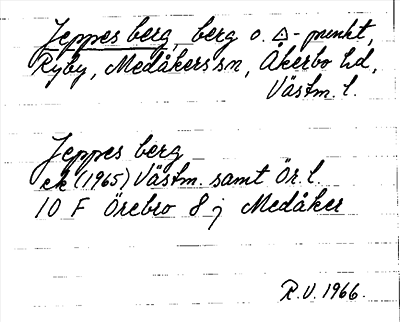 Jeppes berg, berg o. △-punkt,
Ryby, Medåkers sn, Åkerbo hd,
Västm. l.
Jeppes berg
ek (1965) Västm. samt Ör. l.
10 F Örebro 8 j Medåker
R.V. 1966.